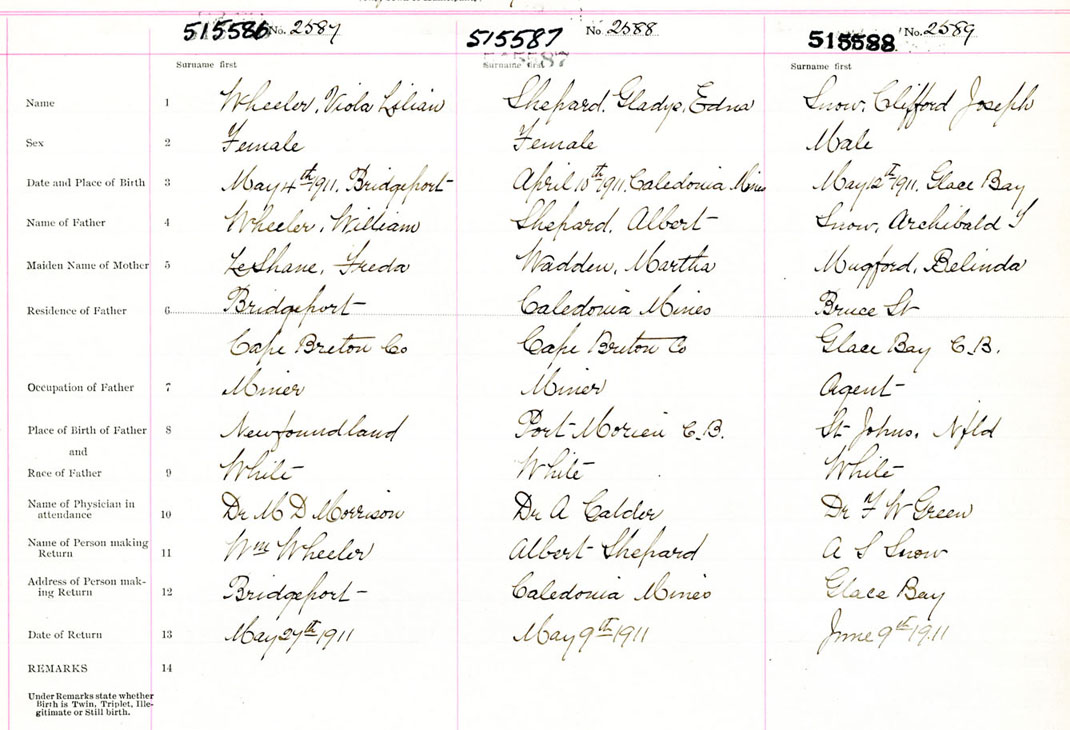 515586 No. 2587 515587 No. 2588 515588 No. 2589
Surname first Surname first Surname first
Name 1 Wheeler, Viola Lilian Shepard, Gladys, Edna Snow, Clifford Joseph
Sex 2 Female Female Male
Date and Place of Birth 3 May 4th 1911, Bridgeport April 10th 1911, Caledonia Mines May 12th 1911, Glace Bay
Name of Father 4 Wheeler, William Shepard, Albert Snow, Archibald S
Maiden Name of Mother 5 LeShane, Freda Wadden, Martha Mugford, Belinda
Residence of Father 6 Bridgeport Caledonia Mines Bruce St
Cape Breton Co Cape Breton Co Glace Bay C.B.
Occupation of Father 7 Miner Miner Agent
Place of Birth of Father 8 Newfoundland Port Morien C.B. St Johns, Nfld
and
Race of Father 9 White White White
Name of Physician in
attendance 10 Dr M D Morrison Dr A Calder Dr F W Green
Name of Person making
Return 11 Wm Wheeler Albert Shepard A S Snow
Address of Person mak-
ing Return 12 Bridgeport Caledonia Mines Glace Bay
Date of Return 13 May 27th 1911 May 9th 1911 June 9th 1911
REMARKS 14
Under Remarks state whether
Birth is Twin, Triplet, Ille-
gitimate or Still birth.